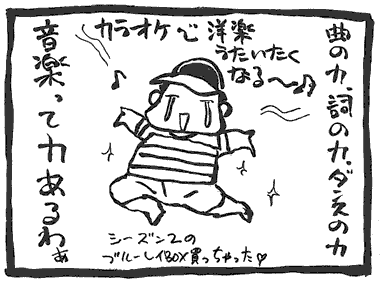 曲の力、詞の力、ダンスの力
カラオケで洋楽
うたいたく
なる〜♪
音楽って力あるわぁ
シーズン2の
ブルーレイBOX買っちゃった♡